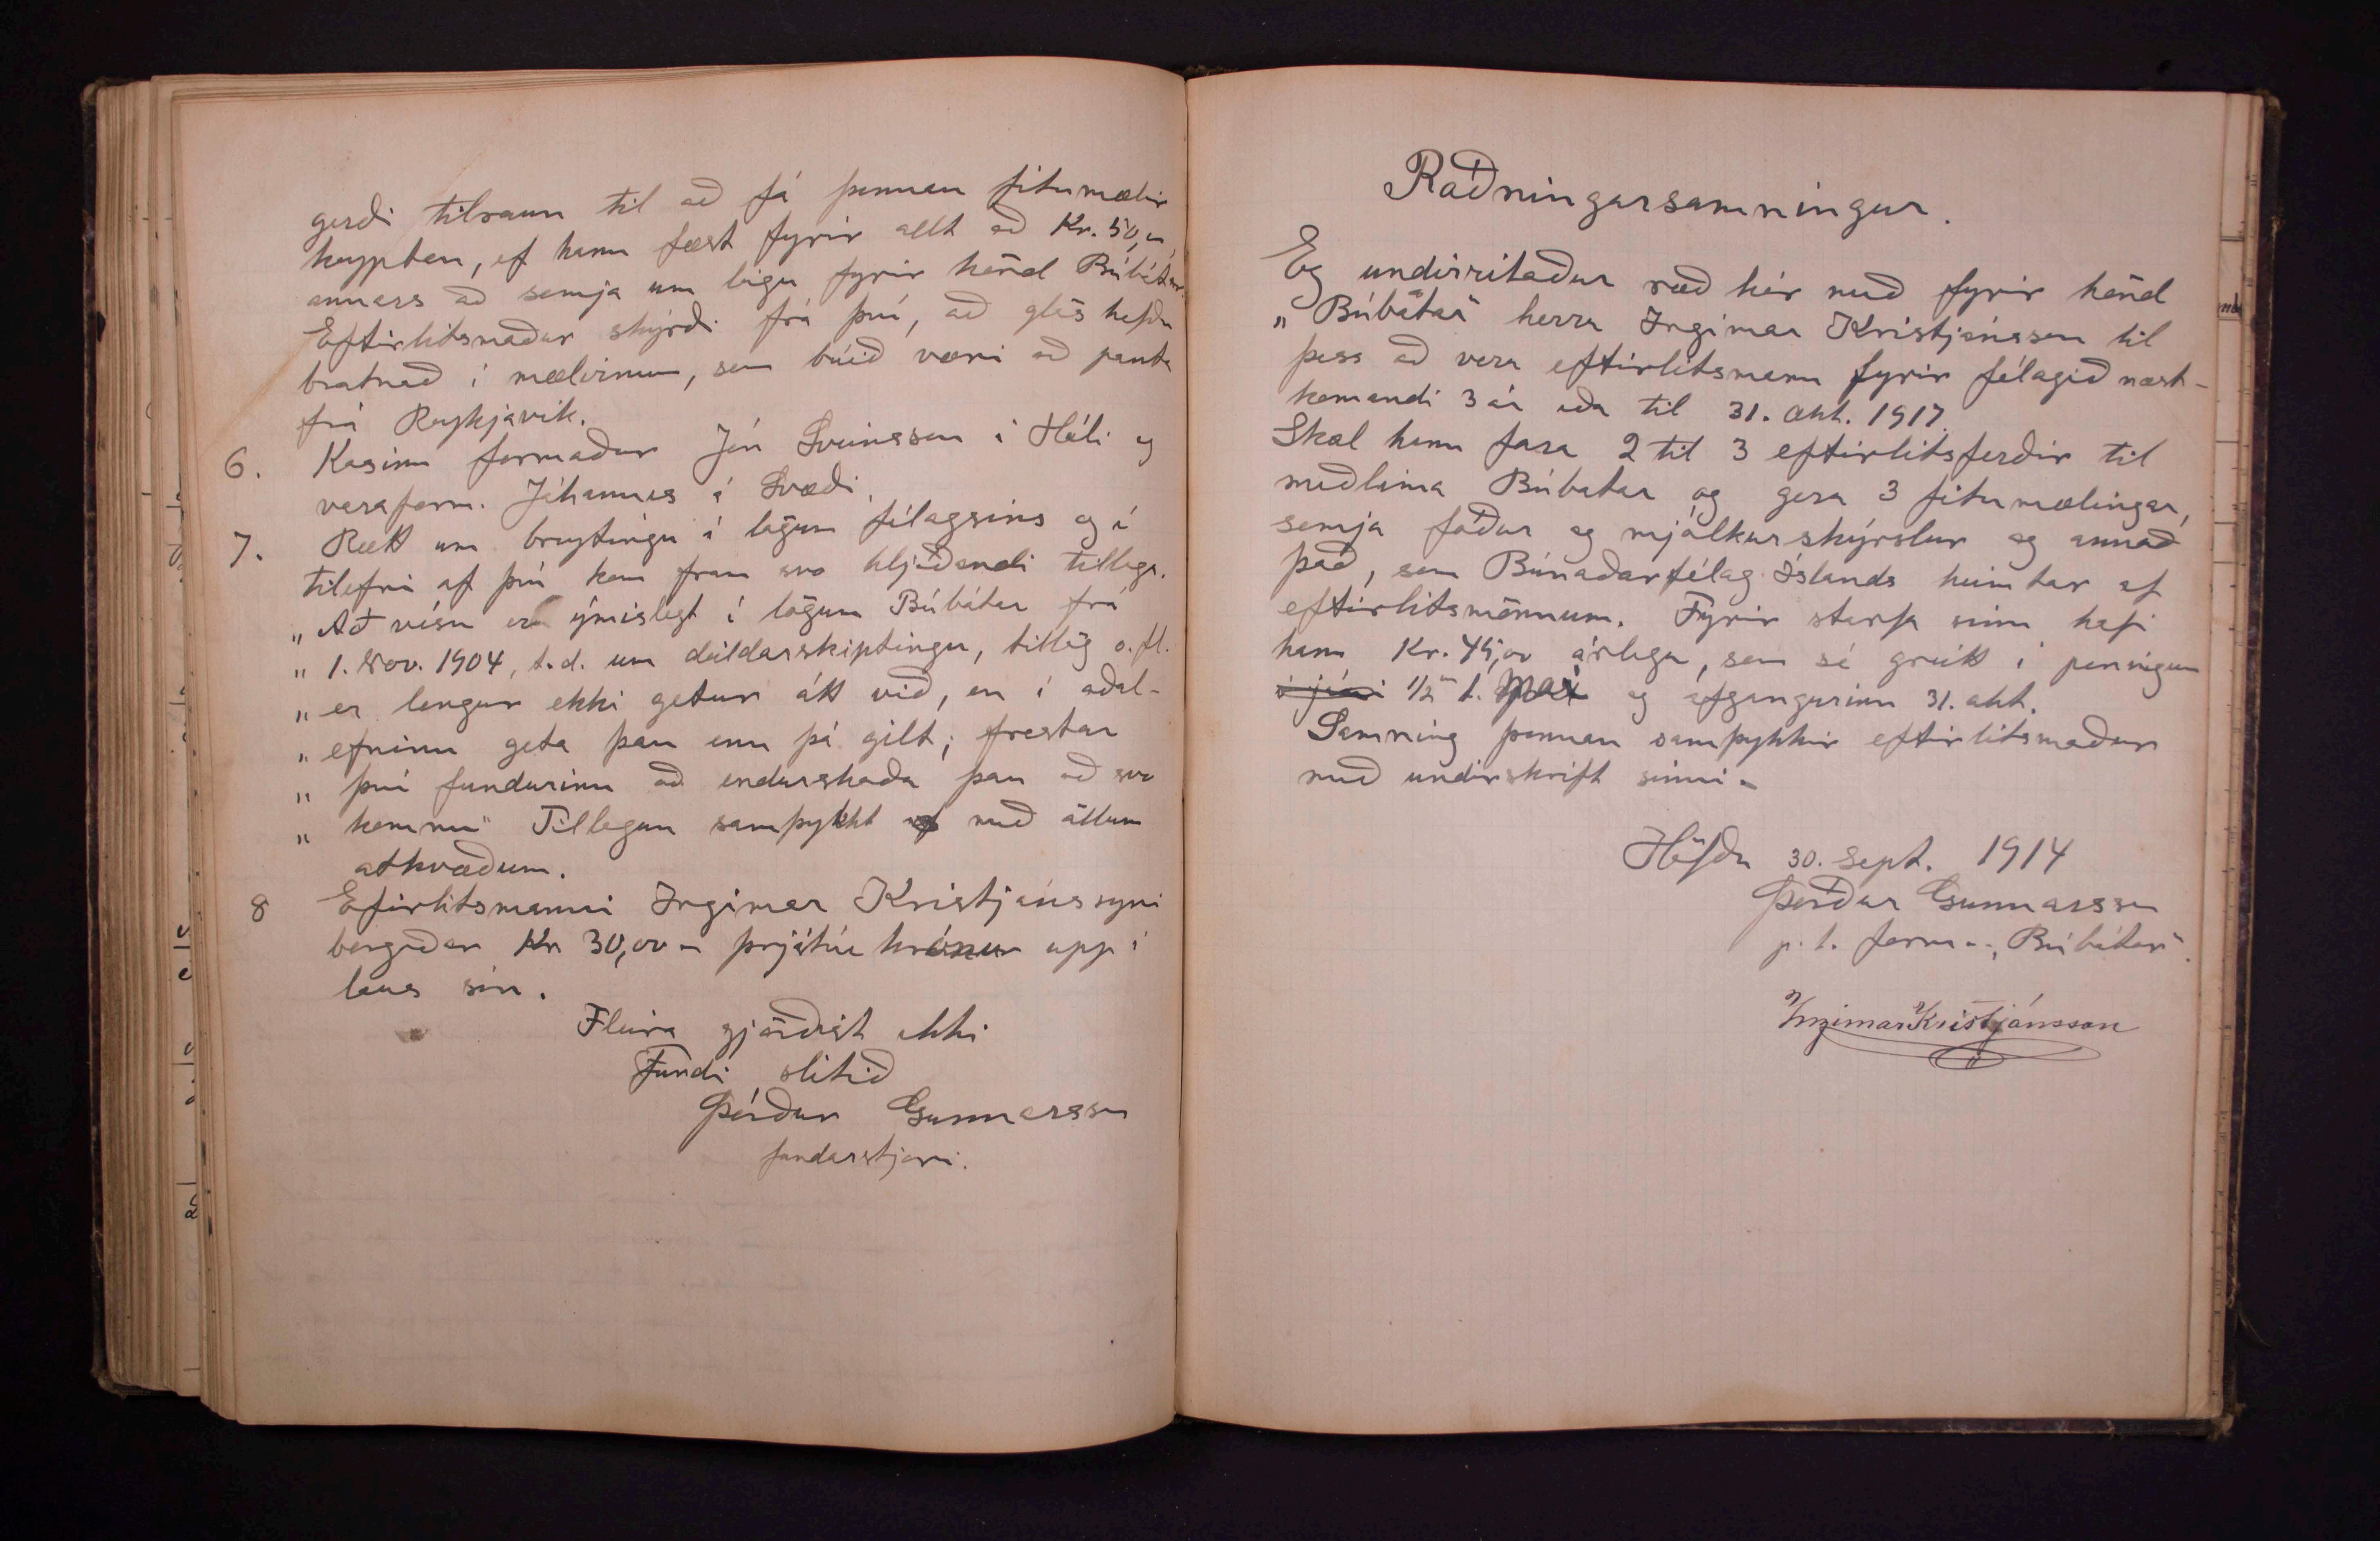 gerði tilraun til að fá þennan fitumælir
keyptan, ef hann fæst fyrir allt að Kr. 50,
annars að semja um leigu fyrir hönd Búbótar.
Eftirlitsmaður skýrði frá því, að glös hefðu
brotnað í mælirnum, sem búið væri að panta
frá Reykjavík.
6. Kosinn formaður Jón Sveinsson á Hóli og
varaform. Jóhannes á Svæði.
7. Rætt um breytingu á lögum félagsins og í
tilefni af því kom fram svo hljóðandi tillaga.
„ Að vísu er ýmislegt í lögum Búbótar frá
„ 1. Nov. 1904, t.d. um deildarskiptingu, tillög o.fl.
„ er lengur ekki getur átt við, en í aðal-
„ efninu geta þau enn þá gilt; frestar
„ því fundurinn að endurskoða þau að svo
„ komnu" Tillagan samþykkt með öllum
atkvæðum.
8 Efirlitsmanni Ingimar Kristjánssyni
borgaðar Kr 30,00 - þrjátíu krónur upp í
laus sín.
Fleira gjörðist ekki
Fundi slitið
Þórður Gunnarsson
fundarstjori.
Ráðningarsamningur.
Eg undirritaður ræð hér með fyrir hönd
„Búbótar" herra Ingimar Kristjánsson til
þess að vera eftirlitsmann fyrir félagið næst-
komandi 3 ár eða til 31. okt. 1917.
Skal hann fara 2 til 3 eftirlitsferðir til
meðlima Búbotar og gera 3 fitumælingar,
semja fóður og mjólkurskýrslur og annað
það, sem Búnaðarfélag Íslands heimtar af
eftirlitsmönnum. Fyrir starfa sinn hafi
hann Kr. 45,00 árlega, sem sé greitt í peningum
í júní 1/2 1. Maí og afgangurinn 31. okt.
Samning þennan samþykkir eftirlitsmaður
með undirskrift sinni -
Höfða 30. Sept. 1914
Þórður Gunnarsson
p.t. form - „Búbótar".
Ingimar Kristjánsson